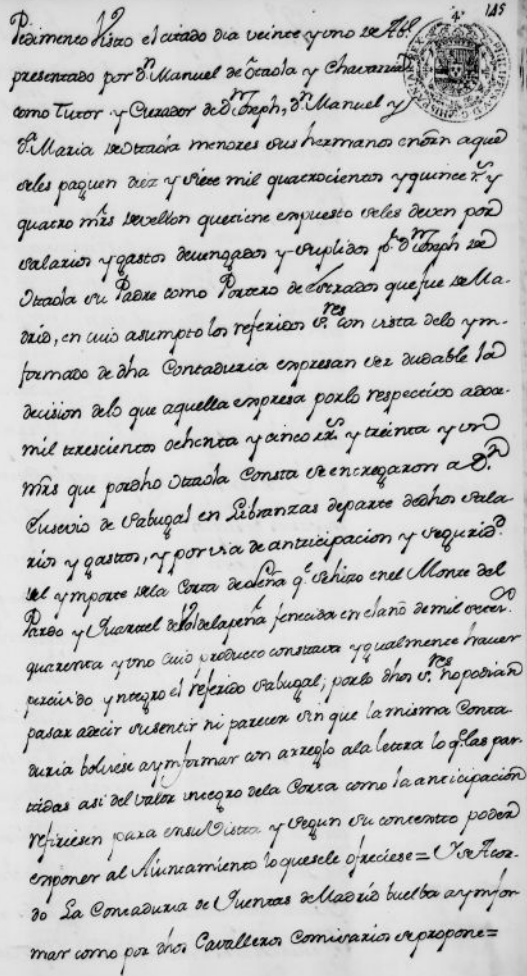 145
Pedimento Visto el citado dia veinte y uno de Ab.l
presentado por d.n Manuel de Otaola y Chavarria
como Tutor y Curador de d.n Joseph, d.n Manuel y
d.a Maria de Otaola menores sus hermanos en orn aque
seles paguen diez y siete mil quatrocientos y quince r.s y
quatro mrs devellon quetiene expuesto seles deven por
salarios y gastos devengados y suplidos p.r d.n Joseph de
Otaola su Padre como Portero de Estrados que fue de Ma-
drid, en cuio asumpto los referidos s.res con vista delo ym-
formado de dha Contaduria expresan ser dudable la
decision delo que aquella expresa porlo respectivo adoze
mil trescientos ochenta y cinco rs y treinta y un
mrs que pordho Otaola Consta se entregaron a D.n
Eusevio de Sabugal en Libranzas departe dedhos sala-
rios y gastos, y por via de anticipacion y segurid.d
del ymporte dela Corta de Leña q.e sehizo enel Monte del
Pardo y Quartel de fenecida en elaño de mil setez.os
quarenta y uno cuio producto constava yqualmente haver
percivido yntegro el referido Sabugal; porlo dhos s.res nopodian
pasar adecir susentir ni parecer sin que la misma Conta-
duria bolviese aymformar con arreglo ala letra lo q.e las par-
tidas asi del valor integro dela Corta como la anticipacion
refiriesen para ensu Vista y segun su contexto poder
exponer al Aiuntamiento lo quesele ofreciese= Y se Acor-
do La Contaduria de Quentas de Madrid buelba aymfor-
mar como por dhos Cavalleros Comisarios se propone=